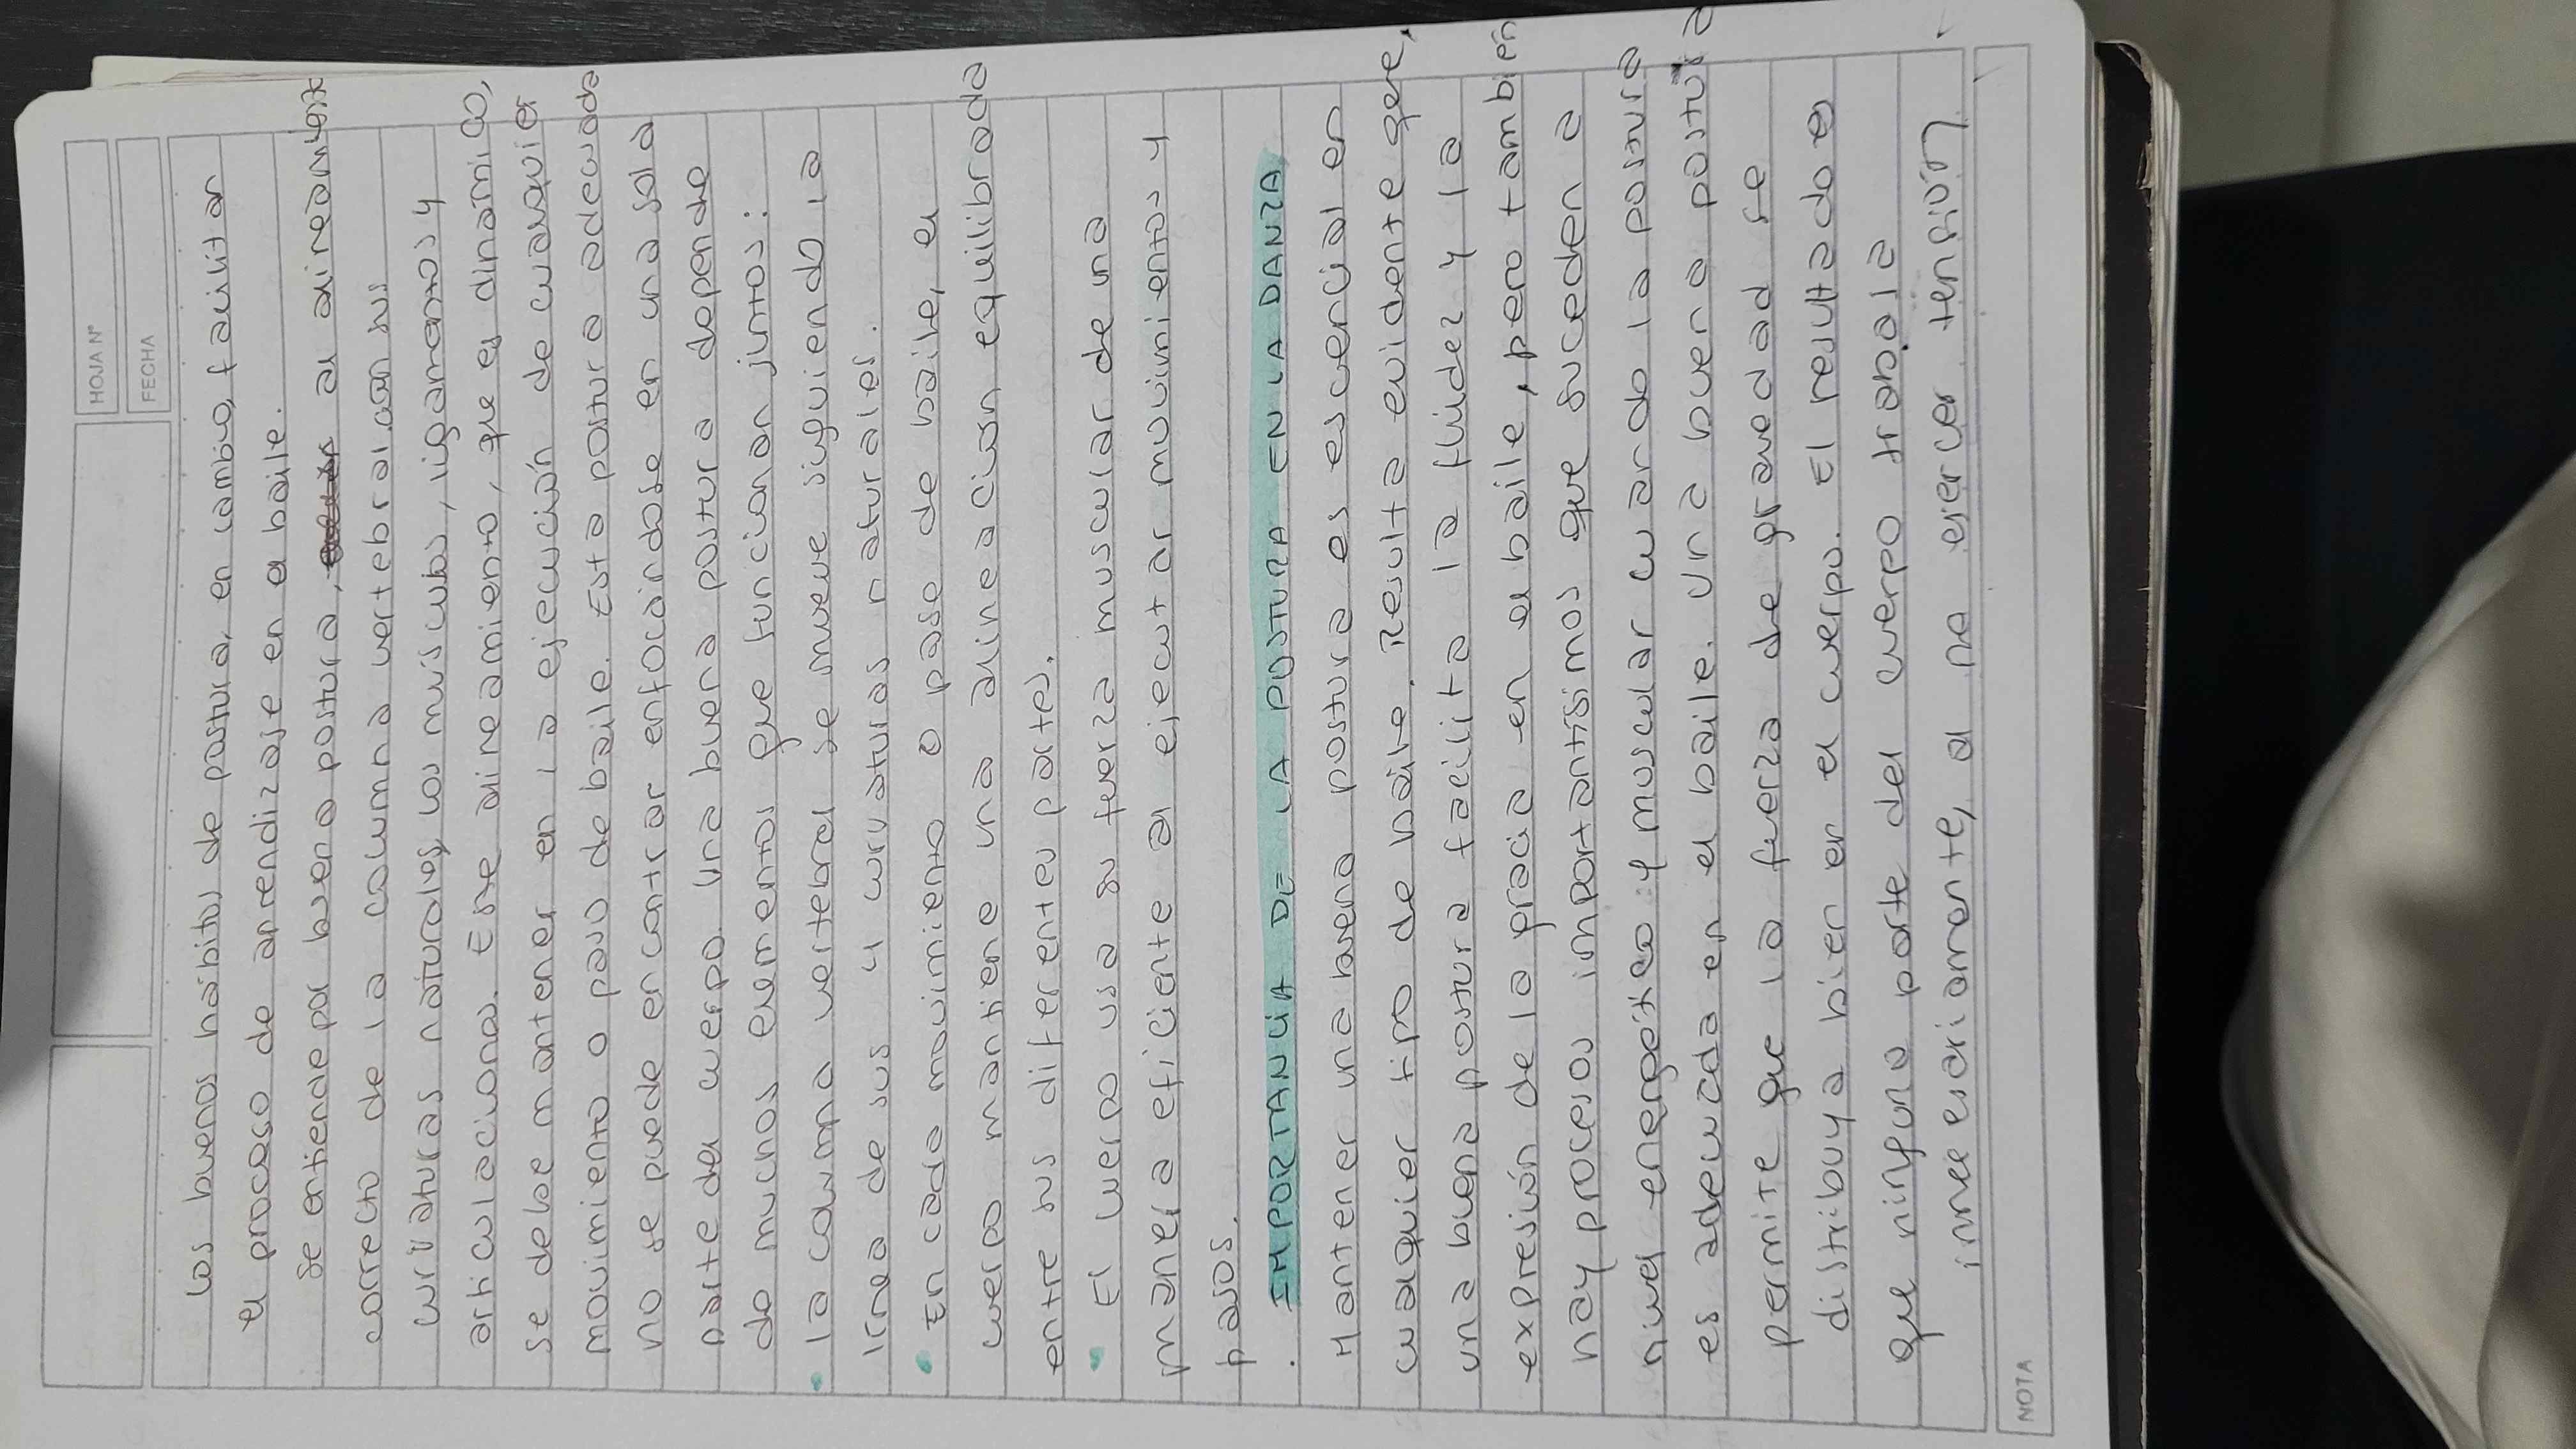 HOJA N°
FECHA
Los buenos hábitos de postura, en cambio, facilitan
el proceso de aprendizaje en el baile.
se entiende por buena postura, al alineamiento
correcto de la columna vertebral con sus
curvaturas naturales, los músculos, ligamentos y
articulaciones. Este alineamiento, que es dinamico,
se debe mantener en la ejecución de cualquier
movimiento o paso de baile. Esta postura adecuada
no se puede encontrar enfocándose en una sola
parte del cuerpo. Una buena postura depende
de muchos elementos que funcionan juntos:
• la columna vertebral se mueve siguiendo la
línea de sus 4 curvaturas naturales.
• En cada movimiento o pase de baile, el
cuerpo mantiene una alineacion equilibrada
entre sus diferentes partes.
• El cuerpo usa su fuerza muscular de una
manera eficiente al ejecutar movimientos y
pasos.
. IMPORTANCIA DE LA POSTURA EN LA DANZA
Mantener una buena postura es escencial en
cualquier tipo de baile. Resulta evidente que,
una buena postura facilita la fluidez y la
expresión de la gracia en el baile, pero tambien
hay procesos importantísimos que suceden a
nivel energético y muscular cuando la postura
es adecuada en el baile. Una buena postura
permite que la fuerza de gravedad se
distribuya bien en el cuerpo. El resultado es
que ninguna parte del cuerpo trabaja
innecesariamente, al no ejercer tensión
NOTA